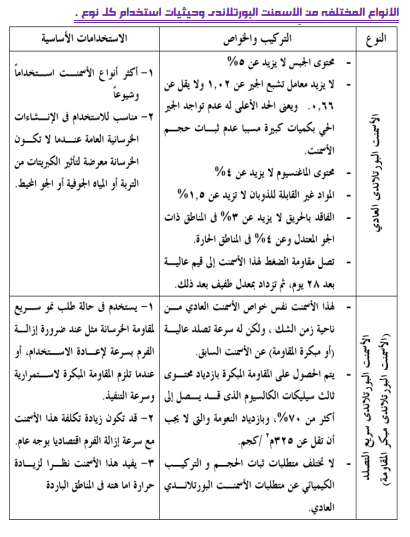 الأنواع المختلفه من الاسمنت البورتلاندى وحيثيات استخدام كل نوع .
النوع
التركيب والخواص
الاستخدامات الأساسية
الأسمنت البورتلاندى العادي
- محتوى الجبس لا يزيد عن ٥%
- لا يزيد معامل تشبع الجير عن ١,٠٢ ولا يقل عن
٠,٦٦ . ويعنى الحد الأعلى له عدم تواجد الجير
الحي بكميات كبيرة مسببا عدم ثبات حجم
الأسمنت.
- محتوى الماغنسيوم لا يزيد عن ٤%
- المواد غير القابلة للذوبان لا تزيد عن ١,٥%
- الفاقد بالحريق لا يزيد عن ٣% في المناطق ذات
الجو المعتدل وعن ٤% في المناطق الحارة.
- تصل مقاومة الضغط لهذا الأسمنت إلى قيم عالية
بعد ٢٨ يوم، ثم تزداد بمعدل طفيف بعد ذلك.
١- أكثر أنواع الأسمنت استخداماً
وشيوعاً
٢- مناسب للاستخدام في الإنشاءات
الخرسانية العامة عندما لا تكون
الخرسانة معرضة لتأثير الكبريتات من
التربة أو المياه الجوفية أو الجو المحيط.
الأسمنت البورتلاندى سريع التصلد
(الأسمنت البورتلاندى مبكر المقاومة)
- لهذا الأسمنت نفس خواص الأسمنت العادي من
ناحية زمن الشك ، ولكن له سرعة تصلد عالية
(أو مبكرة المقاومة) عن الأسمنت السابق.
- يتم الحصول على المقاومة المبكرة بازدياد محتوى
ثالث سيليكات الكالسيوم الذى قد يصل إلى
أكثر من ٧٠%، وبازدياد النعومة والتى لا يجب
أن تقل عن ٣٢٥م٢ /كجم.
- لا تختلف متطلبات ثبات الحجم و التركيب
الكيميائي عن متطلبات الأسمنت البورتلاندي
العادي.
١- يستخدم في حالة طلب نمو سريع
لمقاومة الخرسانة مثل عند ضرورة إزالة
الفرم بسرعة لإعادة الاستخدام، أو
عندما تلزم المقاومة المبكرة لاستمرارية
وسرعة التنفيذ.
٢- قد تكون زيادة تكلفة هذا الأسمنت
مع سرعة إزالة الفرم اقتصاديا بوجه عام.
٣- يفيد هذا الأسمنت نظرا لزيادة
حرارة اماهته في المناطق الباردة